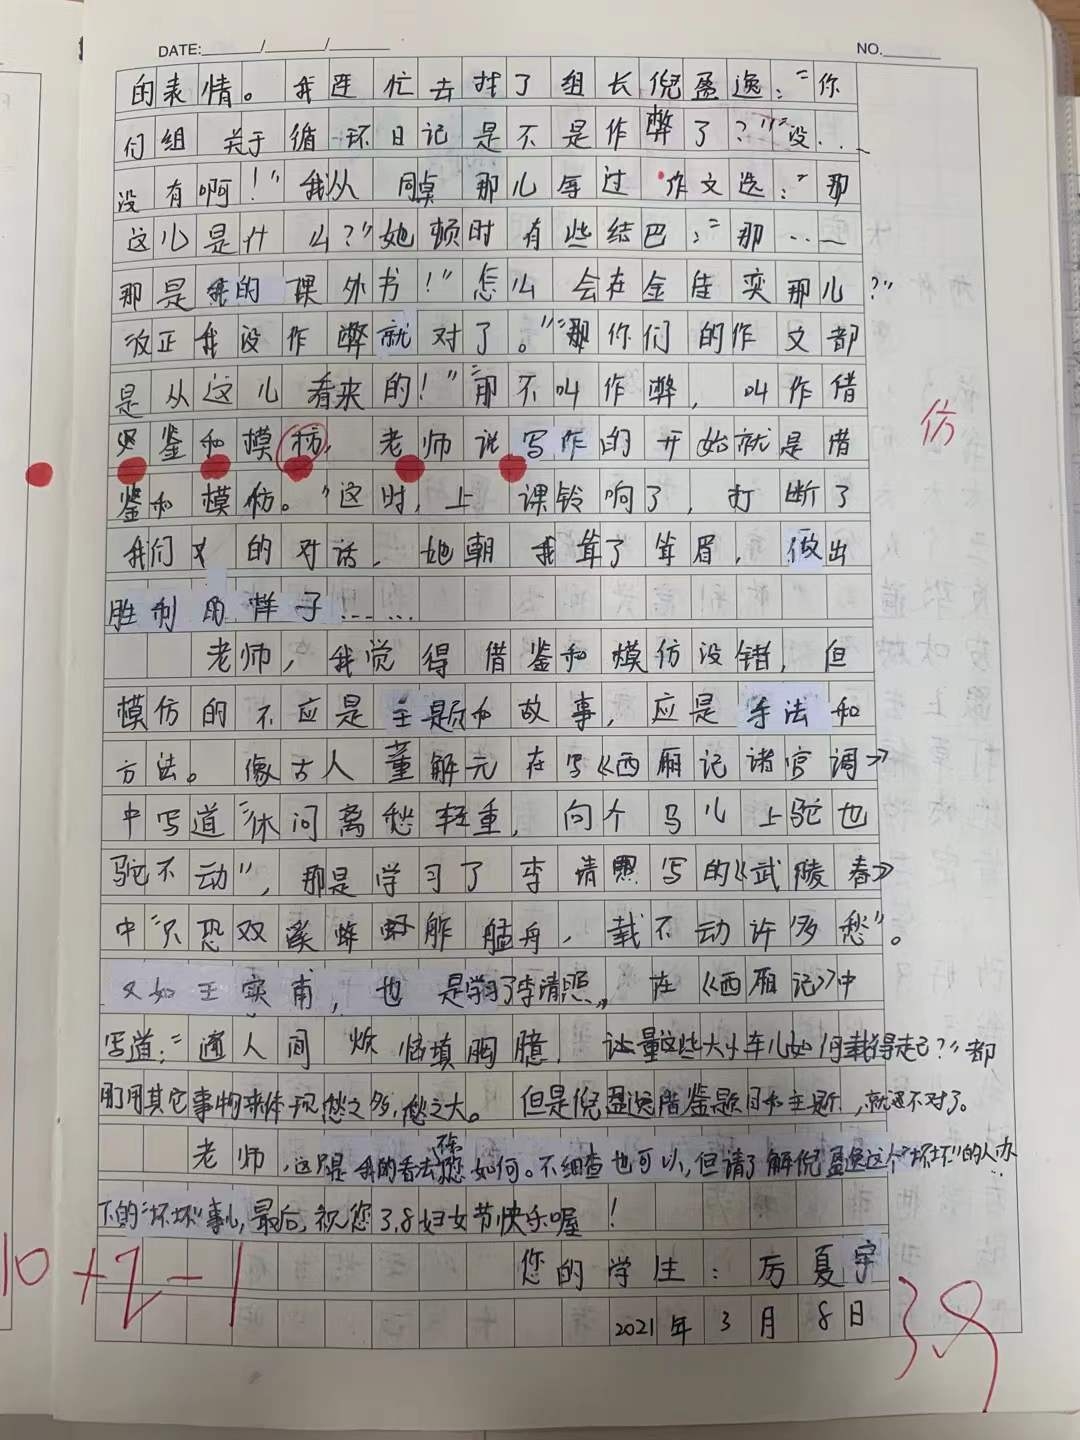 DATE: / /
NO.
的表情。我连忙去找了组长倪盈逸："你
们组关于循环日记是不是作弊了？""没……
没有啊！"我从同桌那儿夺过作文选："那
这儿是什么？"她顿时有些结巴："那……
那是我的课外书！"怎么会在金佳奕那儿？"
"反正我没作弊就对了。""那你们的作文都
是从这儿看来的！""那不叫作弊，叫作借
鉴和模枋，老师说写作的开始就是借
鉴和模仿。"这时，上课铃响了，打断了
我们的对话，她朝我耸了耸眉，做出
胜利的样子……
老师，我觉得借鉴和模仿没错，但
模仿的不应是主题和故事，应是手法和
方法。像古人董解元在写《西厢记诸宫调》
中写道"休问离愁轻重，向个马儿上驼也
驼不动"，那是学习了李清照写的《武陵春》
中"只恐双溪蚱蜢舴艋舟，载不动许多愁"。
又如王实甫，也是学习了李清照，在《西厢记》中
写道："遍人间烦恼填胸臆，量这些大小车儿如何载得起？"都
用其它事物来体现愁之多，愁之大。但是倪盈逸借鉴题目和主题，就还不对了。
老师，这只是我的看法，您如何。不细查也可以，但请了解倪盈逸这个"坏坏"的人办
下的"坏坏"事儿，最后，祝您3.8妇女节快乐喔！
您的学生：厉夏宇
2021年3月8日
仿
10+2-1
39